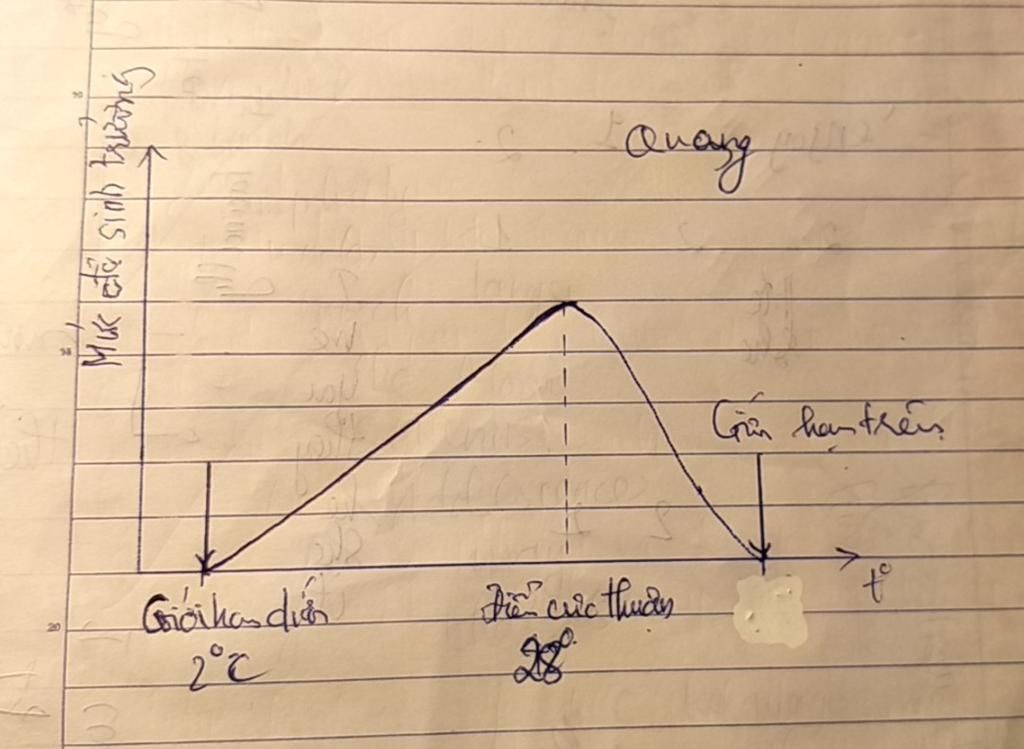 Mức độ sinh trưởng
Quang
Giới hạn trên
t°
Giới hạn dưới
Điểm cực thuận
2°C
28°